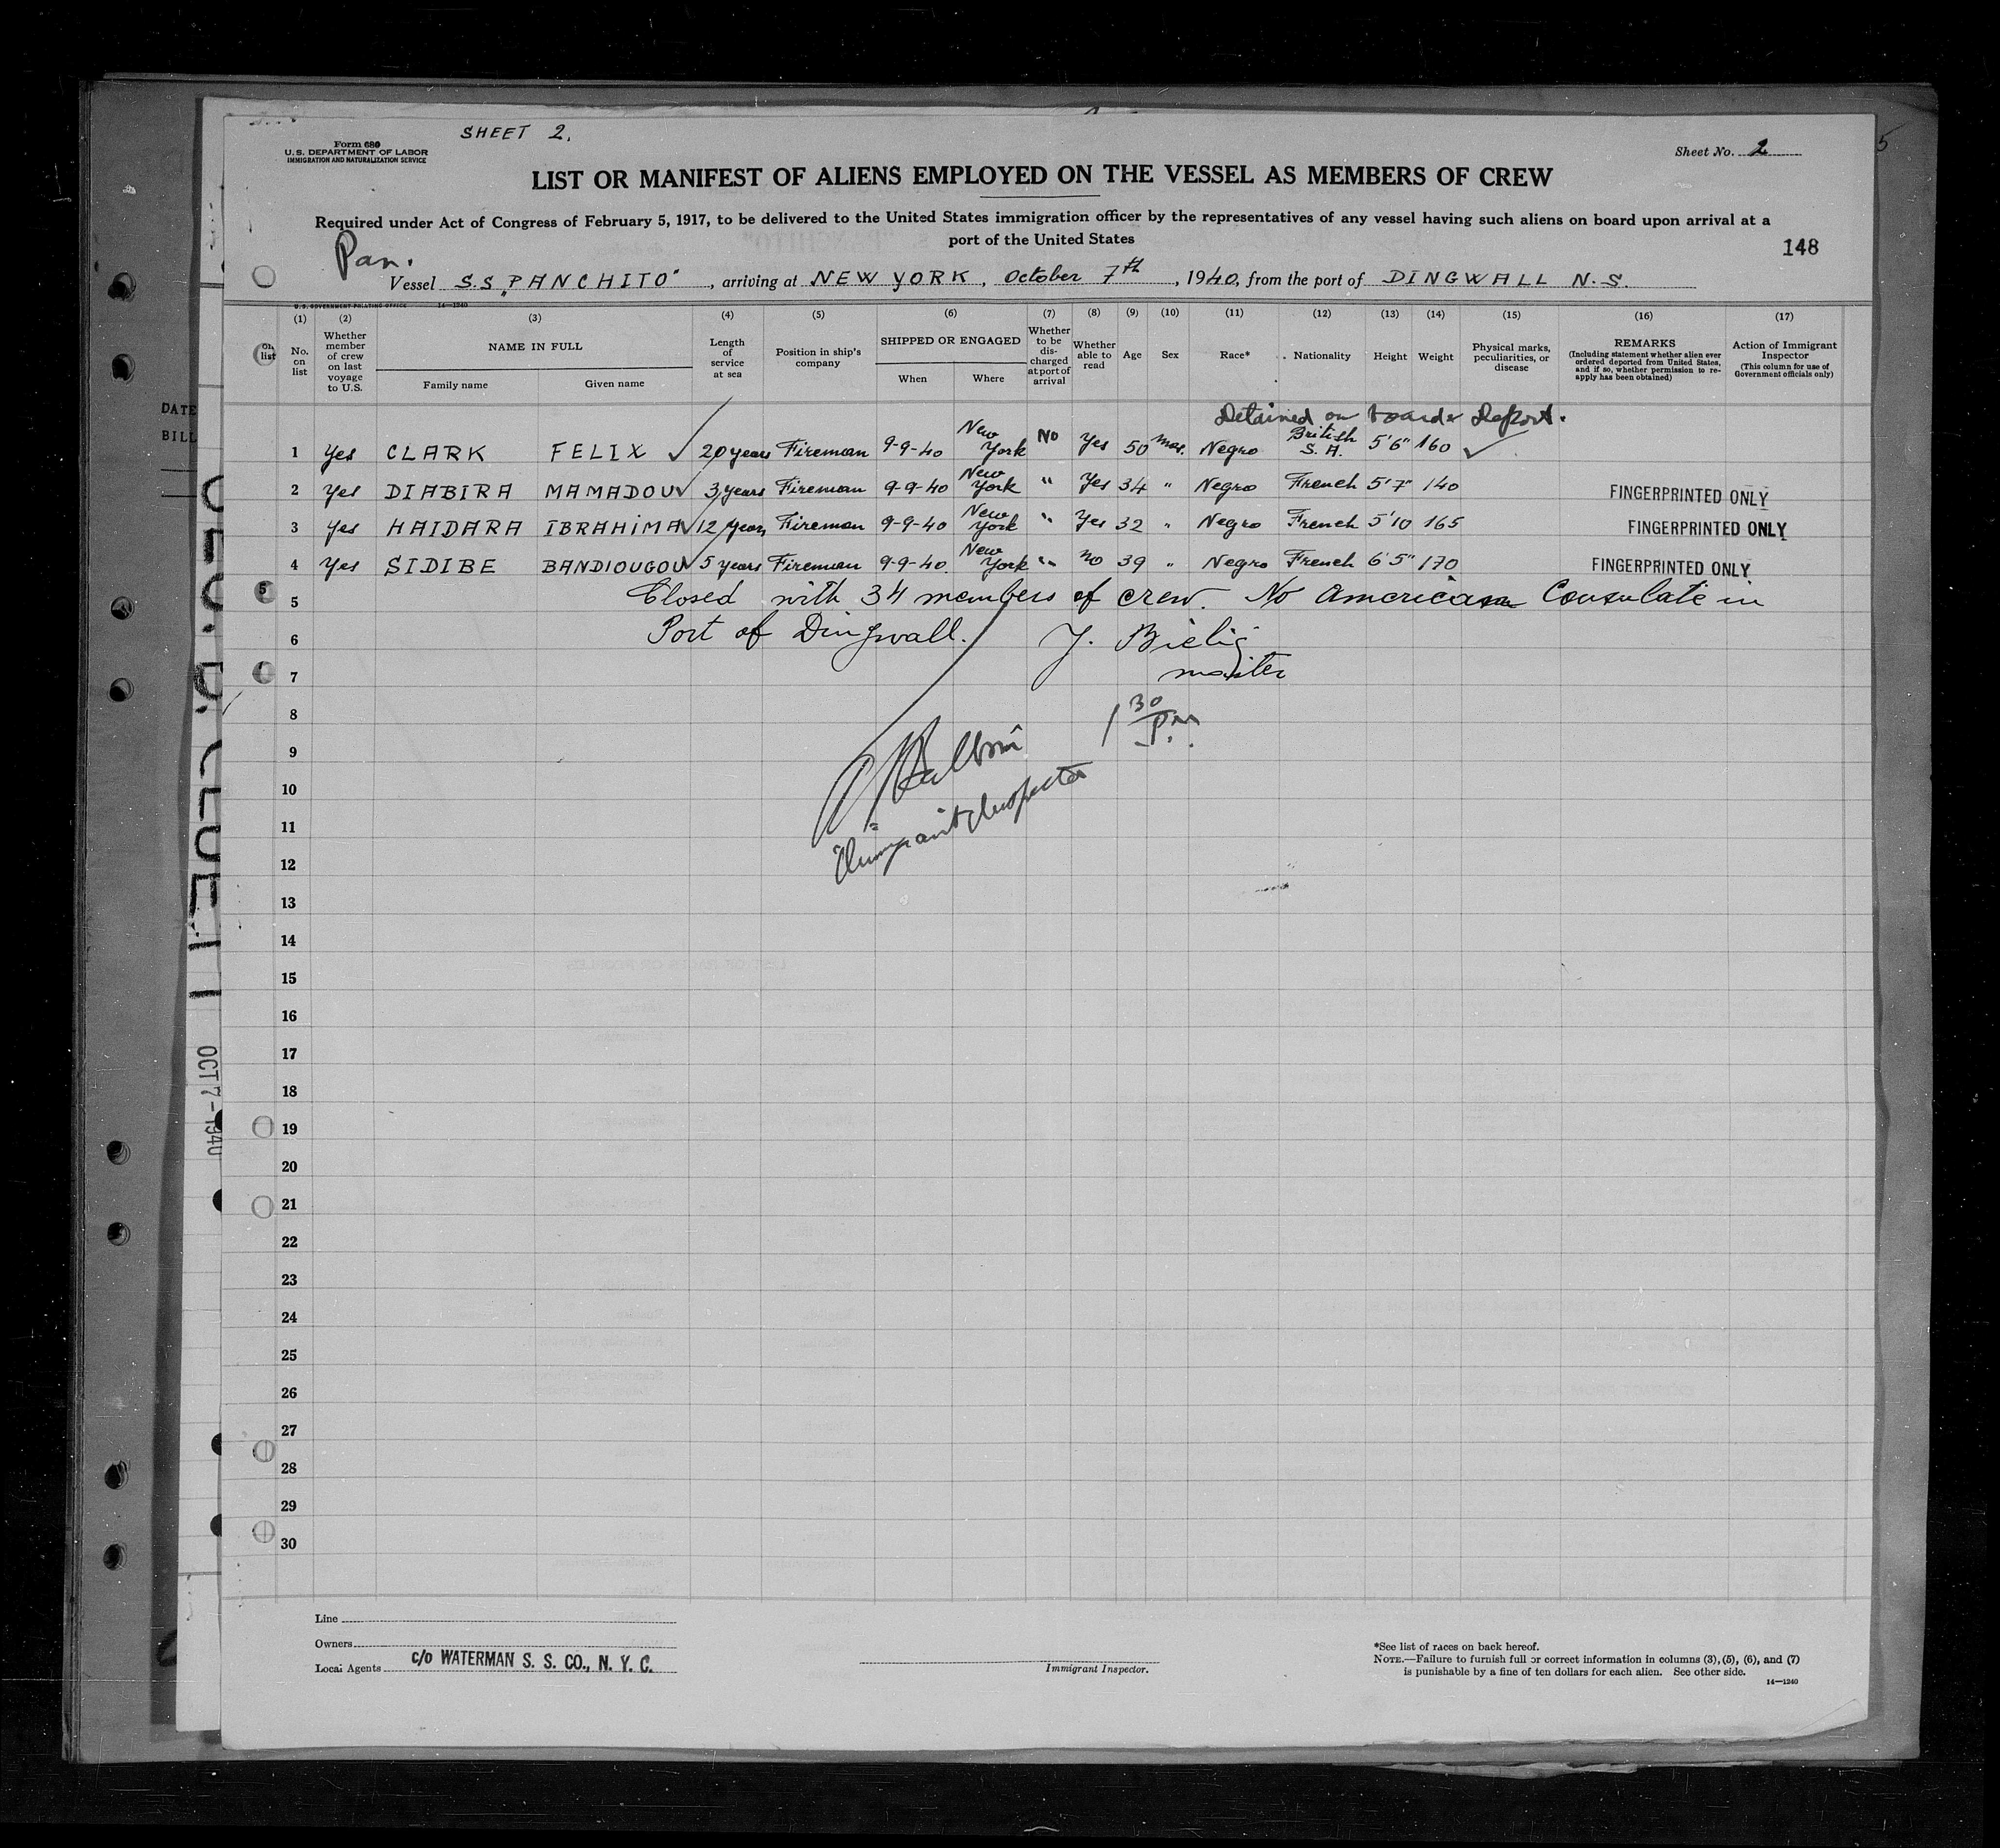 SHEET 2.
Form 680
U. S. DEPARTMENT OF LABOR
IMMIGRATION AND NATURALIZATION SERVICE
Sheet No. 2
5
LIST OR MANIFEST OF ALIENS EMPLOYED ON THE VESSEL AS MEMBERS OF CREW
Required under Act of Congress of February 5, 1917, to be delivered to the United States immigration officer by the representatives of any vessel having such aliens on board upon arrival at a
port of the United States
148
Pan.
Vessel S.S. "PANCHITO", arriving at NEW YORK, October 7th, 1940, from the port of DINGWALL N.S.
U. S. GOVERNMENT PRINTING OFFICE 14—1240
(1) (2) (3) (4) (5) (6) (7) (8) (9) (10) (11) (12) (13) (14) (15) (16) (17)
on list
No. on list
Whether member of crew on last voyage to U.S.
NAME IN FULL
Family name Given name
Length of service at sea
Position in ship's company
SHIPPED OR ENGAGED
When Where
Whether to be discharged at port of arrival
Whether able to read
Age
Sex
Race*
Nationality
Height
Weight
Physical marks, peculiarities, or disease
REMARKS
(Including statement whether alien ever ordered deported from United States, and if so, whether permission to reapply has been obtained)
Action of Immigrant Inspector
(This column for use of Government officials only)
DATE
BILL
Detained on board & Deport.
1 Yes CLARK FELIX ✓ 20 years Fireman 9-9-40 New York No Yes 50 mas. Negro British S. A. 5'6" 160 ✓
2 Yes DIABIRA MAMADOU ✓ 3 years Fireman 9-9-40 New York " Yes 34 " Negro French 5'7" 140 FINGERPRINTED ONLY
3 Yes HAIDARA IBRAHIMA ✓ 12 years Fireman 9-9-40 New York " Yes 32 " Negro French 5'10 165 FINGERPRINTED ONLY
4 Yes SIDIBE BANDIOUGOU ✓ 5 years Fireman 9-9-40 New York " no 39 " Negro French 6'5" 170 FINGERPRINTED ONLY
5 Closed with 34 members of crew. No American Consulate in
6 Port of Dingwall. J. Bielig
7 master
8 1 30 P.M.
9
10
11 Immigrant Inspector
12
13
14
15
16
17
18
19
20
21
22
23
24
25
26
27
28
29
30
OCT 7 - 1940
Line
Owners
Local Agents c/o WATERMAN S. S. CO., N. Y. C.
Immigrant Inspector.
*See list of races on back hereof.
NOTE.—Failure to furnish full or correct information in columns (3), (5), (6), and (7)
is punishable by a fine of ten dollars for each alien. See other side.
14—1240